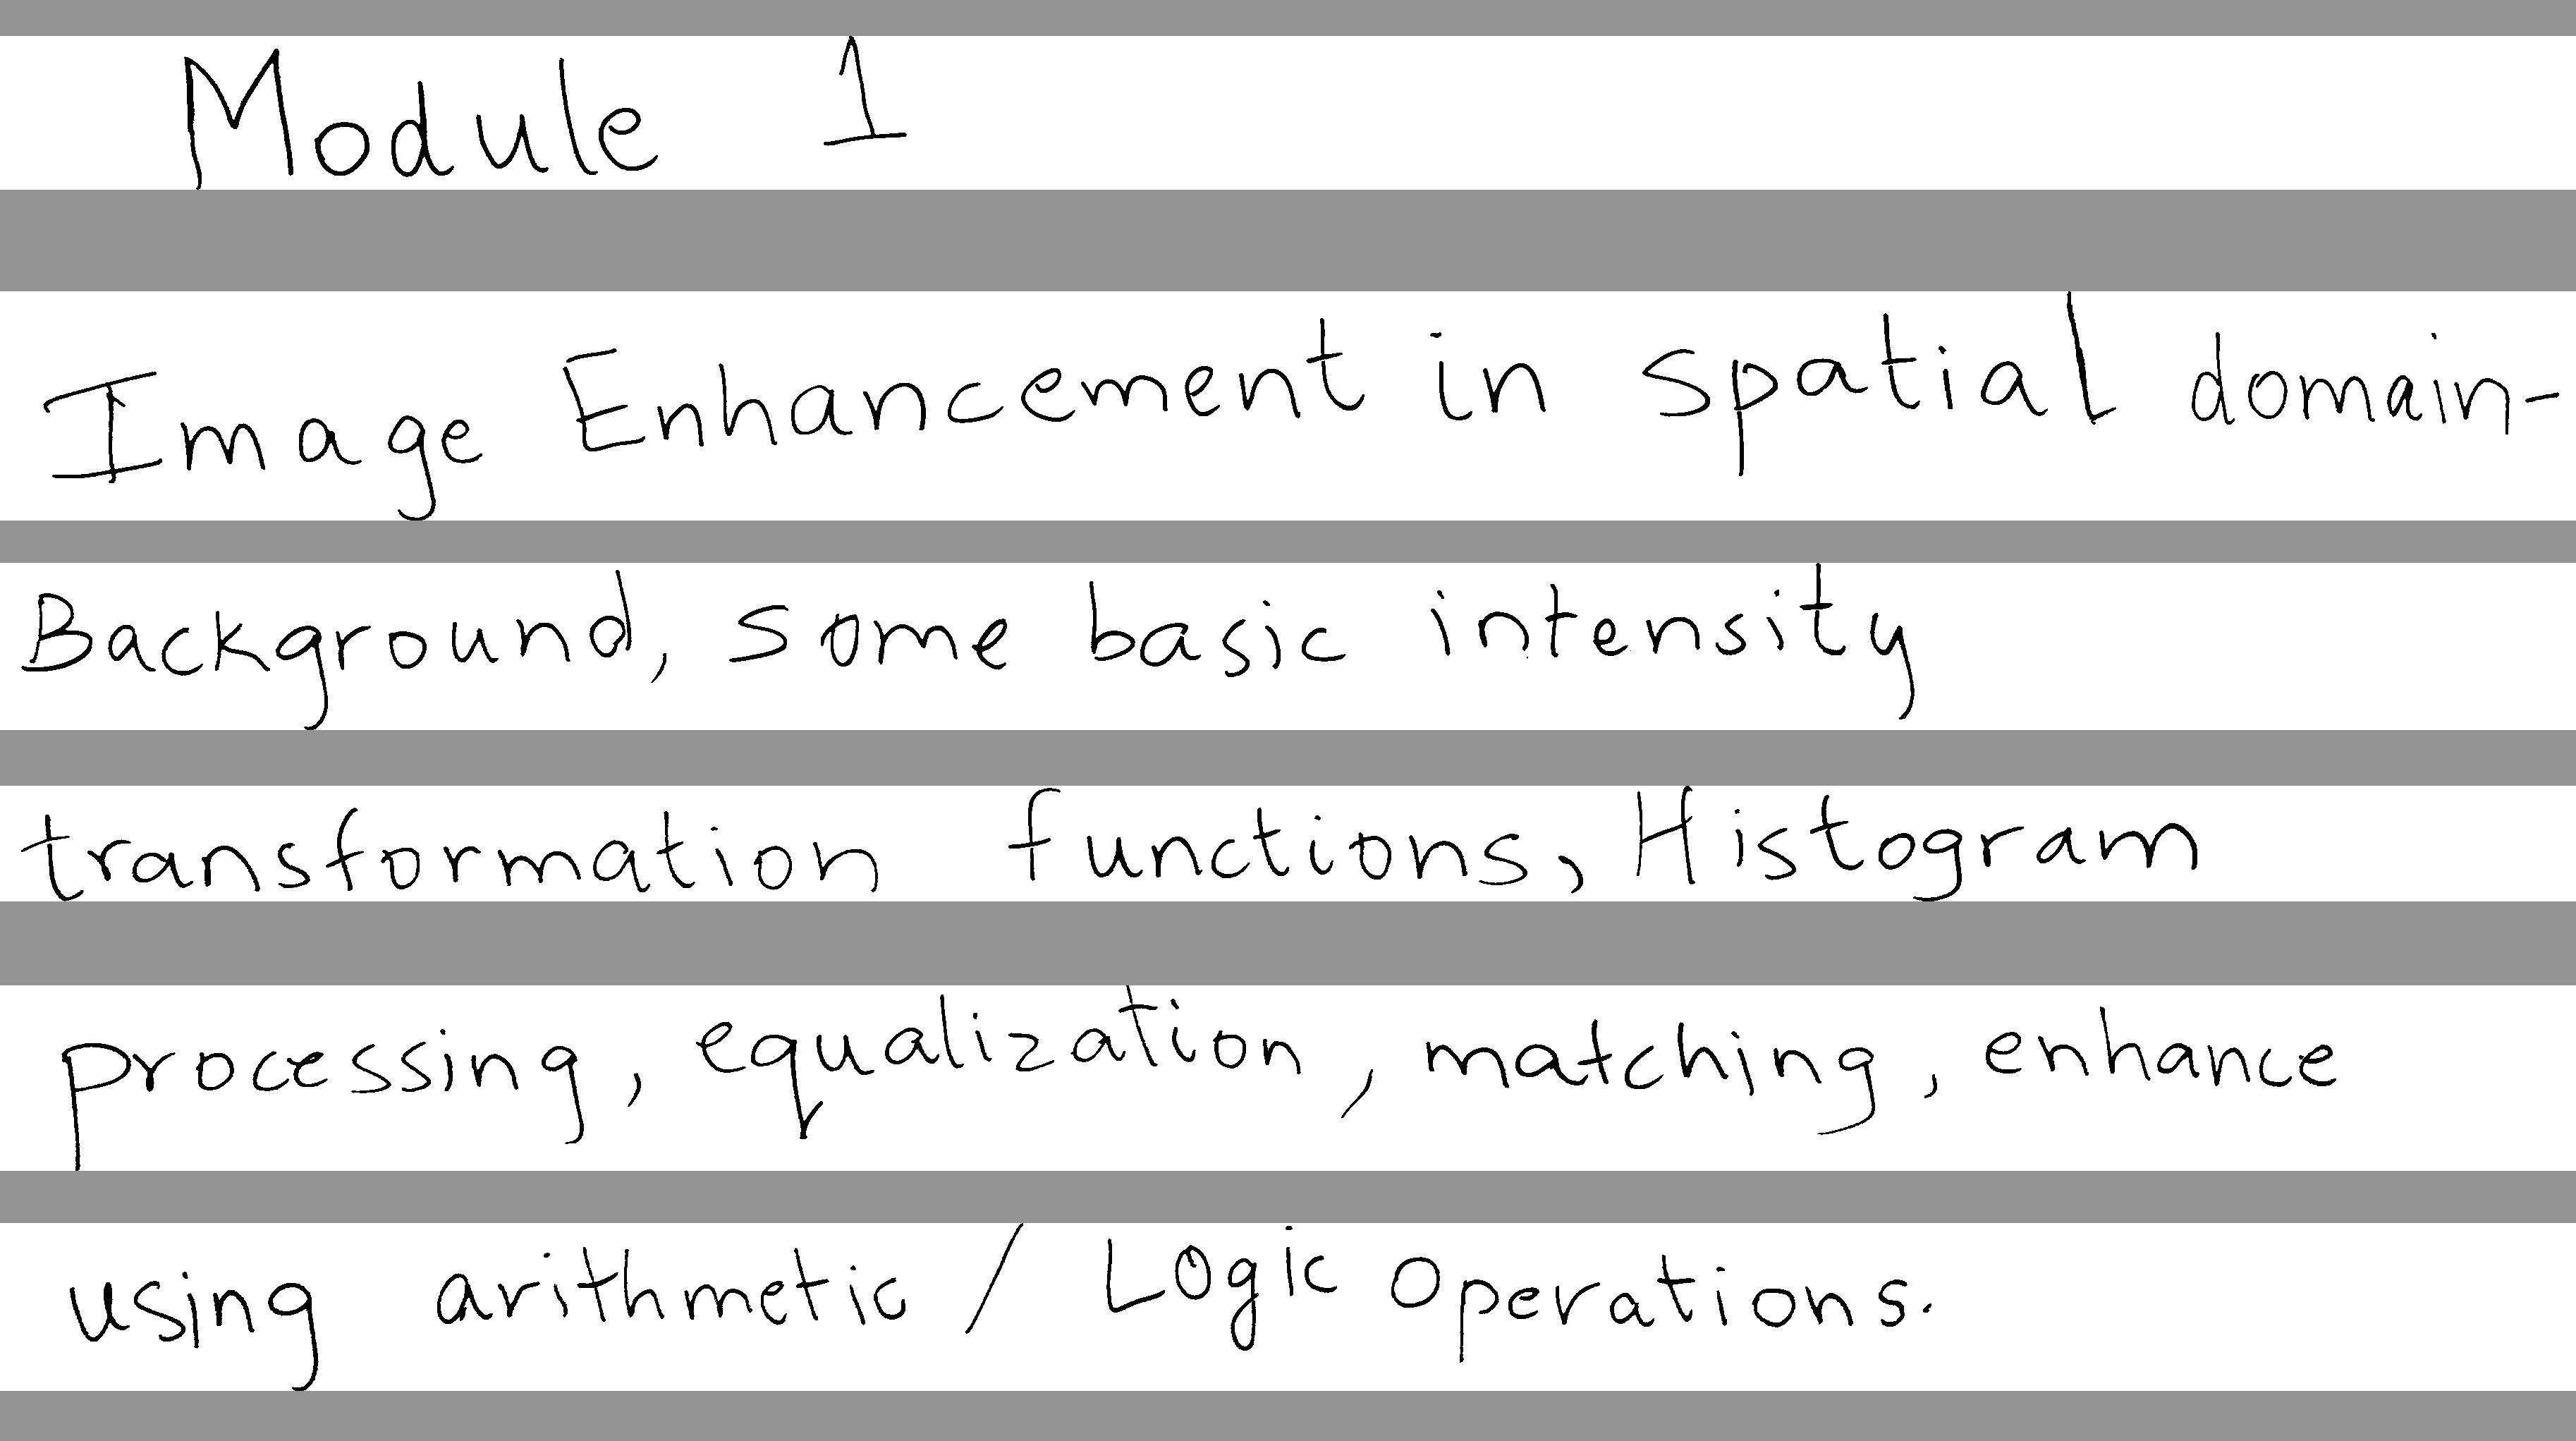 Module 1
Image Enhancement in spatial domain-
Background, some basic intensity
transformation functions, Histogram
processing, equalization, matching, enhance
using arithmetic / Logic operations.